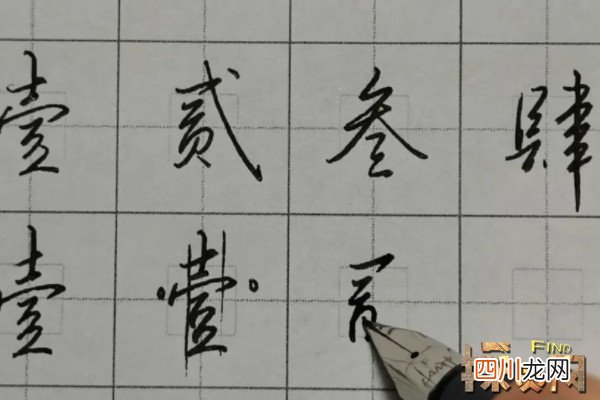 壹 贰 叁 肆
壹 壹
FIND
四川龙网